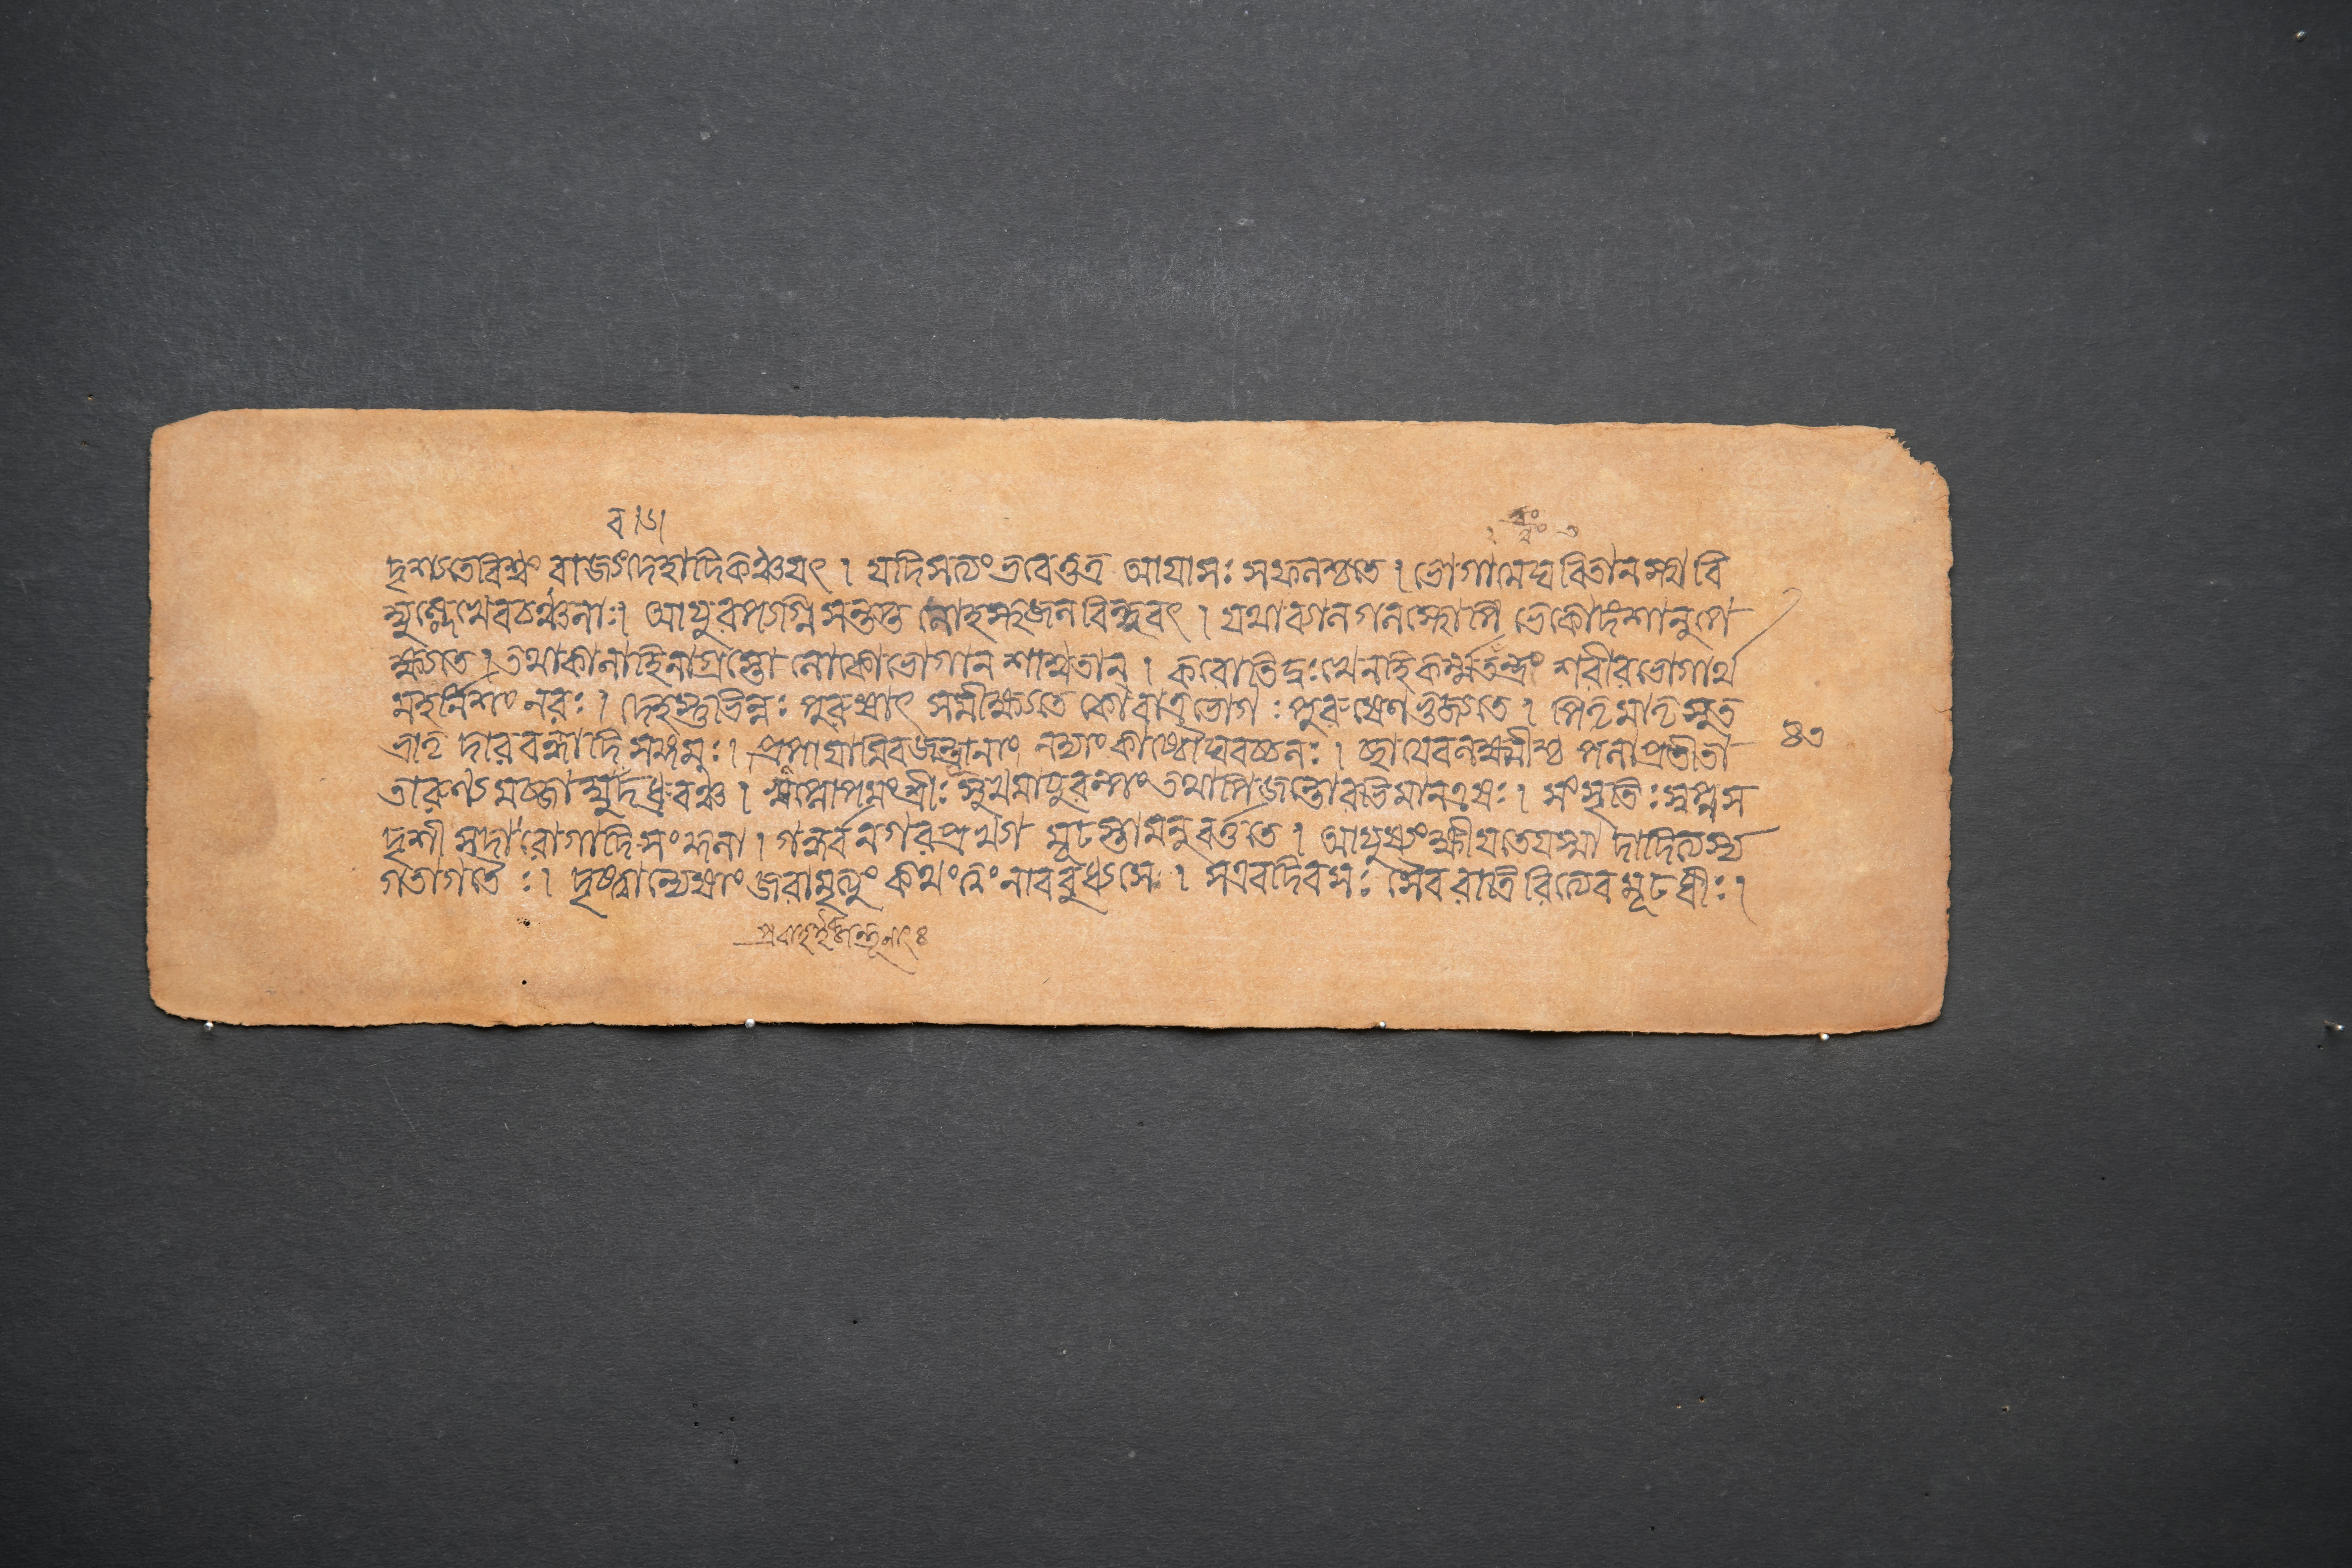 দৃশ্যতেবিশ্বং রাজ্যংদেহাদিকঞ্চযৎ । যদিসত্যং ভবেত্তত্র আয়াসঃ সফলশ্চতে । ভোগামেঘবিতানস্থ বি
দ্যুল্লেখেবচঞ্চলাঃ । আয়ুরপ্যগ্নিসন্তপ্ত লোহস্থজলবিন্দুবৎ । যথাব্যালগলস্থোপি ভেকোদংশানুপে
ক্ষ্যতে । তথাকালাহিনাগ্রস্তো লোকোভোগান শাশ্বতান্ । করোতিদুঃখেনহিকর্ম্মতন্ত্রং শরীরভোগার্থ
মহর্নিশং নরঃ । দেহস্তুভিন্নঃ পুরুষাৎ সমীক্ষ্যতে কোবাত্রভোগঃ পুরুষেণভুজ্যতে । পিতৃমাতৃসুত
ভ্রাতৃ দারবন্ধ্বাদিসঙ্গমঃ । প্রপায়ামিবজন্তূনাং নদ্যাংকাষ্ঠৌঘবচ্চলঃ । ছায়েবলক্ষ্মীশ্চ পলাপ্রতীতা
তারুণ্য ধ্রুবঞ্চ । স্বপ্নোপমংস্ত্রীঃসুখমায়ুরল্পংতথাপিজন্তোরভিমানএষঃ । সংসৃতিঃস্বপ্নস
দৃশী সদারোগাদিসংকুলা । গন্ধর্বনগরপ্রখ্যা মূঢস্তামনুবর্ত্ততে । আয়ুষ্যংক্ষীয়তেযস্মা দাদিত্যস্য
গতাগতৈঃ । দৃষ্ট্বান্যেষাং জরামৃত্যুং কথং নাববুধ্যসে । সএবদিবসঃ সৈবরাত্রিরিত্যেবমূঢধীঃ ।
৪৩